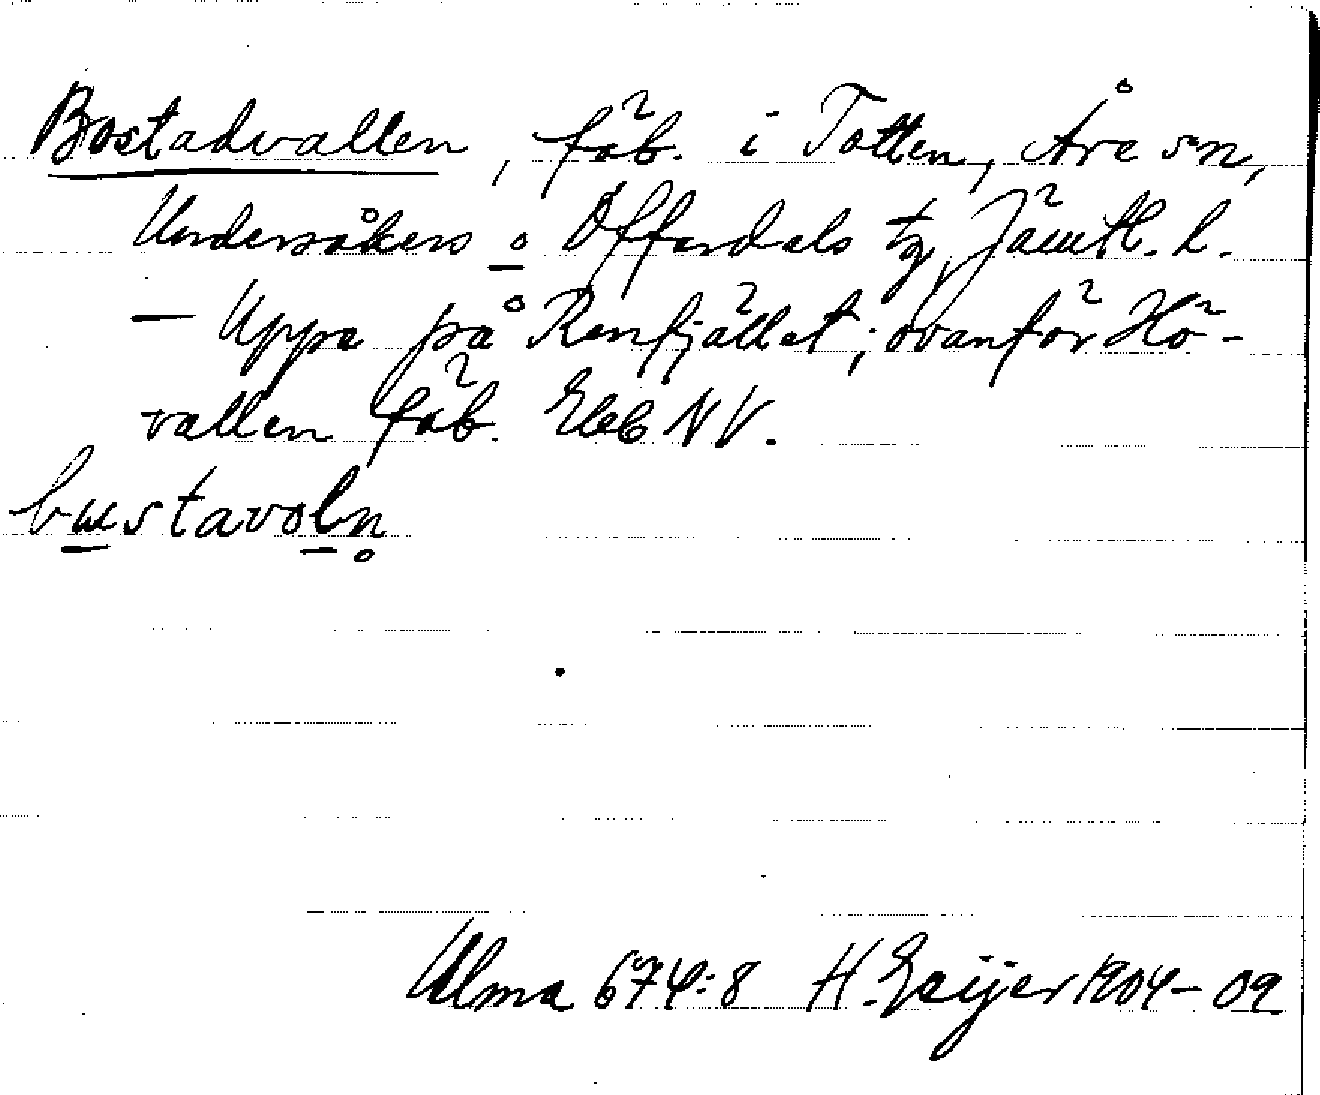 Bostadvallen, fäb. i Totten, Åre sn,
Undersåkers o Offerdals tg, Jämtl. l.
— Uppe på Renfjället; ovanför Hö-
vallen fäb. Ekbl NV.
bustavoln
Ulma 674:8 H. Geijer 1904-09